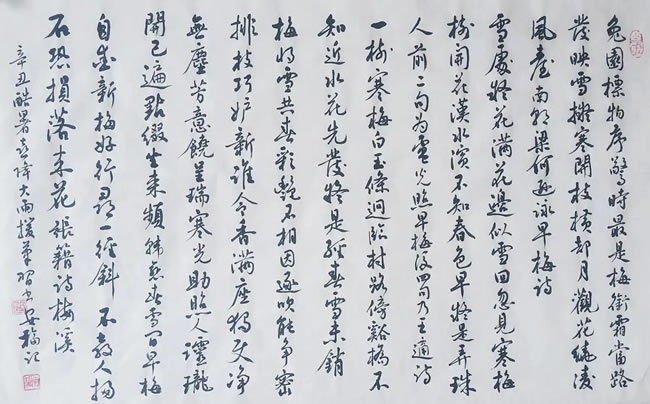 兔園標物序驚時最是梅銜霜當路
發映雪擬寒開枝橫卻月觀花繞凌
風臺南朝梁何遜詠早梅詩
雪處疑花滿花邊似雪回忽見寒梅
樹開花漢水濱不知春色早疑是弄珠
人前二句為雪光照早梅後四句乃王適詩
一樹寒梅白玉條迥臨村路傍谿橋不
知近水花先發疑是經春雪未銷
梅將雪共春彩艷不相因逐吹能爭密
排枝巧妒新誰令香滿座獨使淨
無塵芳意饒呈瑞寒光助照人玲瓏
開已遍點綴坐來頻韓愈春雪間早梅
自愛新梅好行尋一徑斜不教人掃
石恐損落來花張籍詩梅溪
辛丑酷暑喜降大雨援筆習書安福記